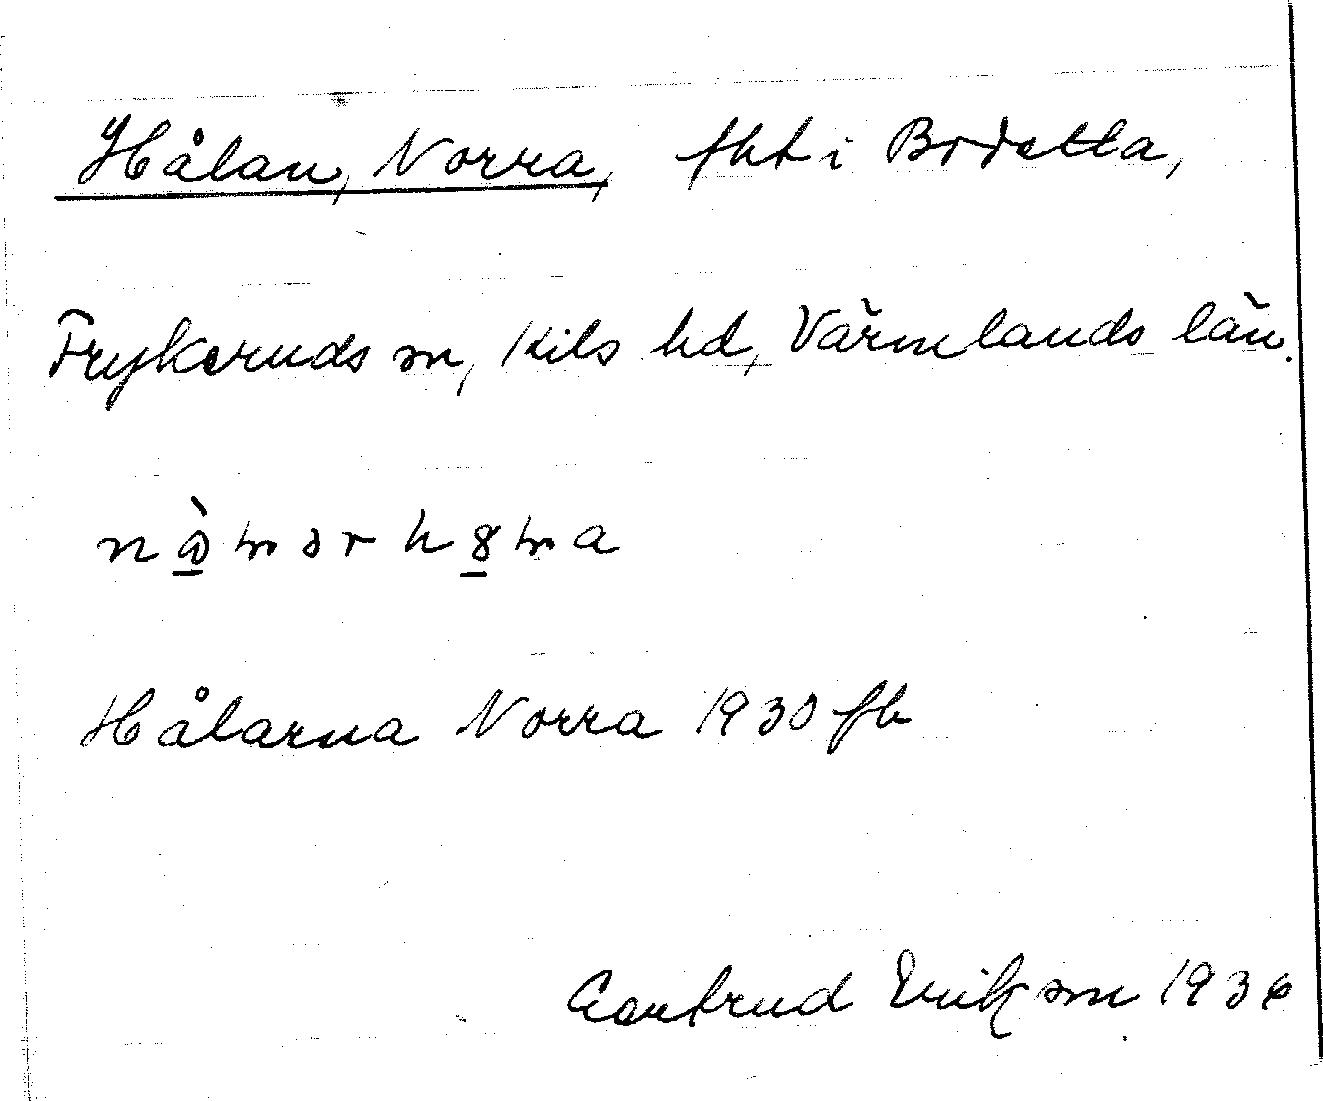 Hålan, Norra, fht i Brosetta,
Frykeruds sn, Kils hd, Värmlands län.
Hålarna Norra 1930 fb
Gertrud Ericson 1936